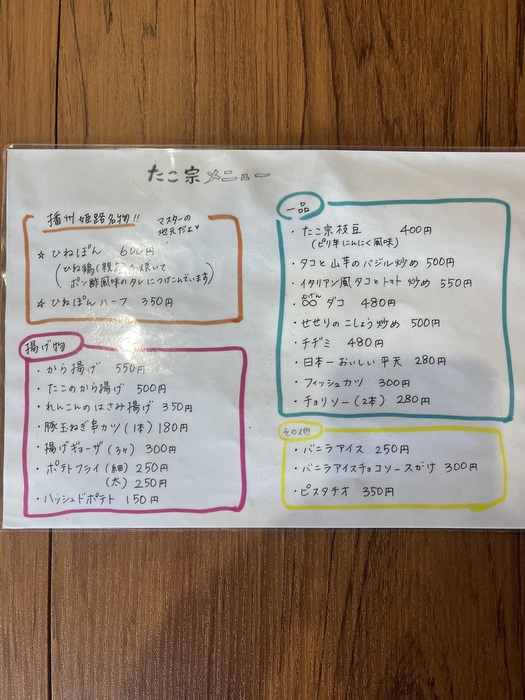 たこ宗メニュー
播州姫路名物!!
マスターの
地元だよ♥
☆ ひねぽん 600円
(ひね鶏(親 焼いて
ポン酢風味のタレにつけこんでいます)
☆ ひねぽんハーフ 350円
揚げ物
・から揚げ 550円
・たこのから揚げ 500円
・れんこんのはさみ揚げ 350円
・豚玉ねぎ串カツ(1本) 180円
・揚げギョーザ(3ヶ) 300円
・ポテトフライ(細) 250円
(太) 250円
・ハッシュドポテト 150円
一品
・たこ宗枝豆 400円
(ピリ辛にんにく風味)
・タコと山芋のバジル炒め 500円
・イタリアン風タコとトマト炒め 550円
・∞ダコ 480円
むげん
・せせりのこしょう炒め 500円
・チヂミ 480円
・日本一おいしい平天 280円
・フィッシュカツ 300円
・チョリソー(2本) 280円
その他
・バニラアイス 250円
・バニラアイスチョコソースがけ 300円
・ピスタチオ 350円